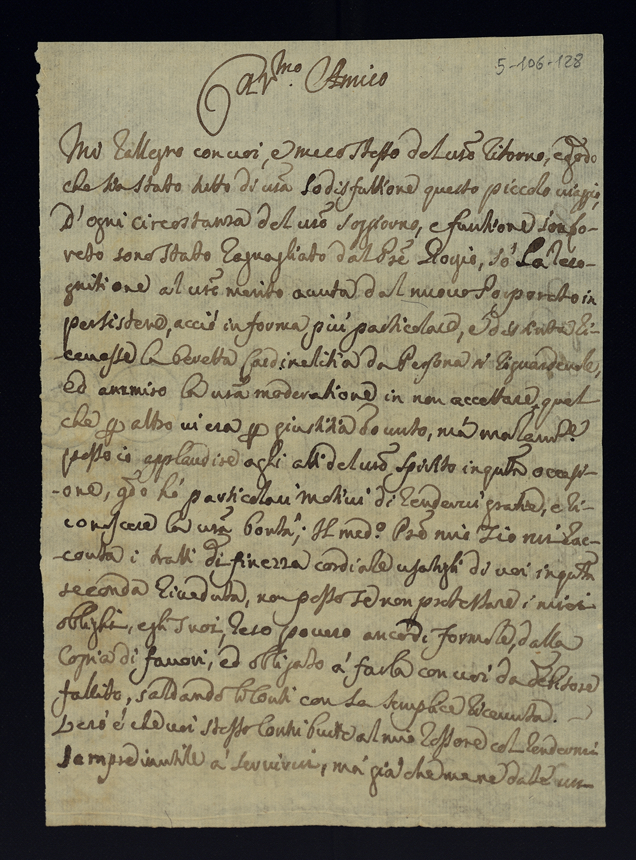 5-106-128
Car.mo Amico
Mi rallegro con voi, e meco stesso del vro ritorno, e godo
che sia stato tutto di vra sodisfattione questo piccolo viaggio,
D'ogni circostanza del vro soggiorno, e funtione
sono stato ragguagliato dal Pre so la reco-
gnitione al vro merito avuta dal nuovo Porporato in
persistere, acciò in forma più particolare, e ri-
cevesse la beretta Cardinalitia da Persona sì riguardevole,
Ed ammiro la vra moderatione in non accettare quel
che p altro vi era p giustitia dovuto, mà
posso io applaudire agli atti del vro Spirito in qta occasi-
-one, qdo hò particolari motivi di rendervi gratie, e ri-
conoscere la vra bontà; Il med.o Pre mio Zio mi rac-
-conta i tratti di finezza cordiale usatigli di voi in qta
seconda riveduta, non posso se non protestare i miei
oblighi, e gli suoi, reso povero ancor di formole, dalla
Copia di favori, ed obligato à farla con voi da debitore
fallito, saldando li Conti con la semplice ricevuta.
Però è che voi stesso Contribuite al mio rossore col rendermi
sempre inutile à servirvi, mà già che me ne date un